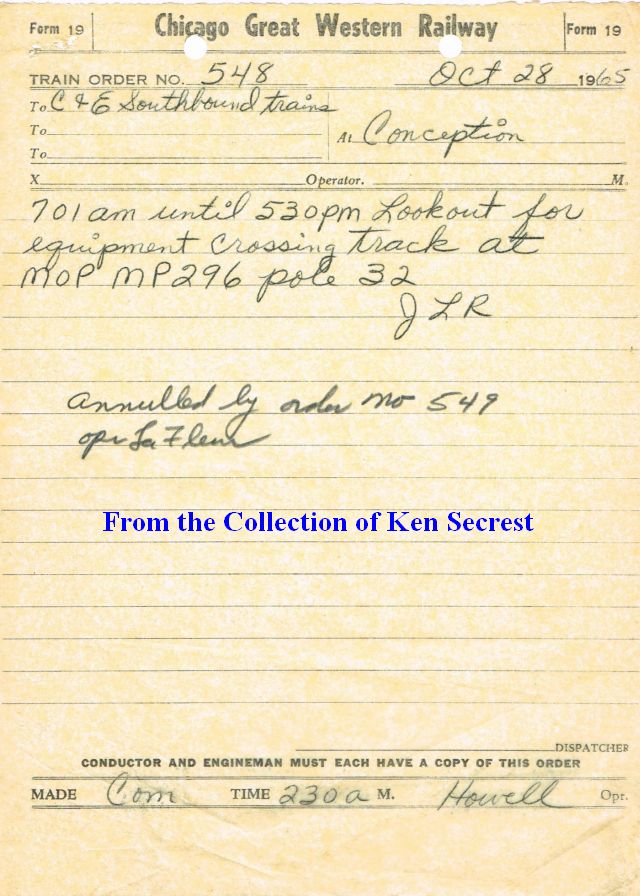 Form 19 Chicago Great Western Railway Form 19
TRAIN ORDER NO. 548 Oct 28 1965
To C & E Southbound trains
To At Conception
To
X Operator. M.
701am until 530pm Lookout for
equipment crossing track at
MOP MP296 pole 32
JLR
annulled by order no 549
opr La Fleur
From the Collection of Ken Secrest
DISPATCHER
CONDUCTOR AND ENGINEMAN MUST EACH HAVE A COPY OF THIS ORDER
MADE Com TIME 230a M. Howell Opr.